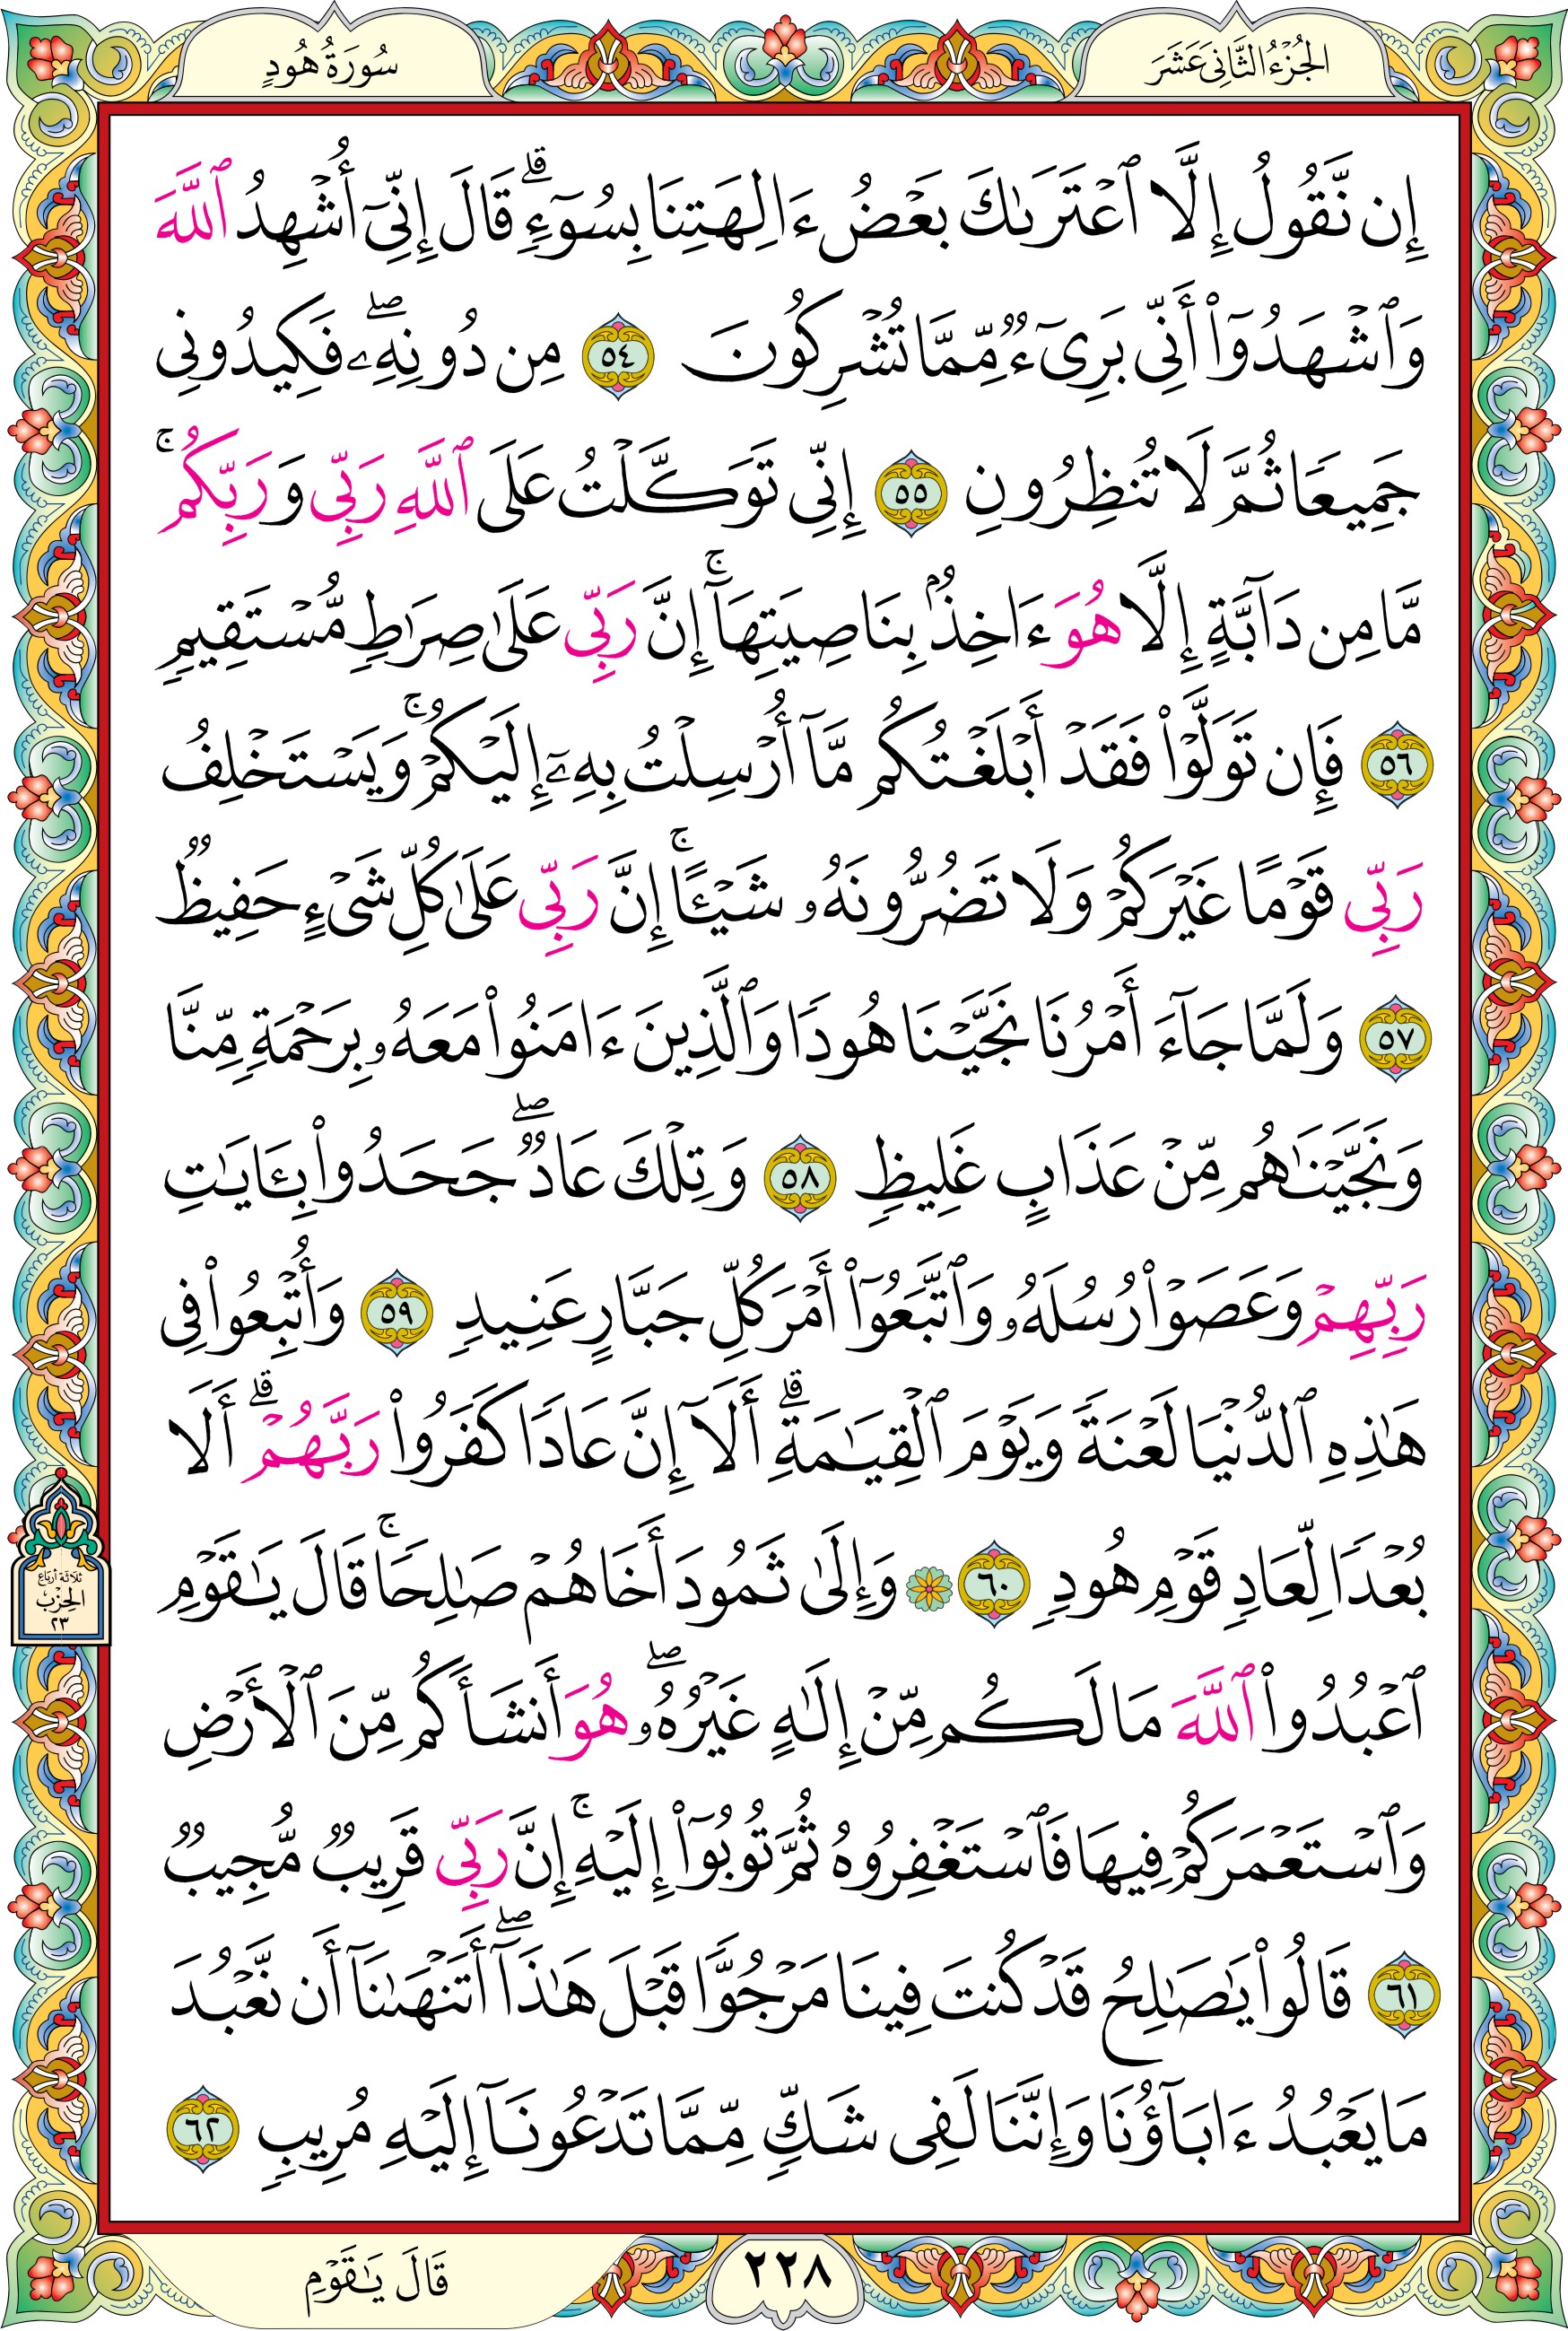 الجُزْءُ الثَّانِى عَشَرَ
سُورَةُ هُودٍ
إِن نَّقُولُ إِلَّا ٱعْتَرَىٰكَ بَعْضُ ءَالِهَتِنَا بِسُوٓءٍۗ قَالَ إِنِّىٓ أُشْهِدُ ٱللَّهَ
وَٱشْهَدُوٓا۟ أَنِّى بَرِىٓءٌ مِّمَّا تُشْرِكُونَ ٥٤ مِن دُونِهِۦۖ فَكِيدُونِى
جَمِيعًا ثُمَّ لَا تُنظِرُونِ ٥٥ إِنِّى تَوَكَّلْتُ عَلَى ٱللَّهِ رَبِّى وَرَبِّكُمۚ
مَّا مِن دَآبَّةٍ إِلَّا هُوَ ءَاخِذٌۢ بِنَاصِيَتِهَآۚ إِنَّ رَبِّى عَلَىٰ صِرَٰطٍ مُّسْتَقِيمٍ
٥٦ فَإِن تَوَلَّوْا۟ فَقَدْ أَبْلَغْتُكُم مَّآ أُرْسِلْتُ بِهِۦٓ إِلَيْكُمْۚ وَيَسْتَخْلِفُ
رَبِّى قَوْمًا غَيْرَكُمْ وَلَا تَضُرُّونَهُۥ شَيْـًٔاۚ إِنَّ رَبِّى عَلَىٰ كُلِّ شَىْءٍ حَفِيظٌ
٥٧ وَلَمَّا جَآءَ أَمْرُنَا نَجَّيْنَا هُودًا وَٱلَّذِينَ ءَامَنُوا۟ مَعَهُۥ بِرَحْمَةٍ مِّنَّا
وَنَجَّيْنَٰهُم مِّنْ عَذَابٍ غَلِيظٍ ٥٨ وَتِلْكَ عَادٌۖ جَحَدُوا۟ بِـَٔايَٰتِ
رَبِّهِمْ وَعَصَوْا۟ رُسُلَهُۥ وَٱتَّبَعُوٓا۟ أَمْرَ كُلِّ جَبَّارٍ عَنِيدٍ ٥٩ وَأُتْبِعُوا۟ فِى
هَٰذِهِ ٱلدُّنْيَا لَعْنَةً وَيَوْمَ ٱلْقِيَٰمَةِۗ أَلَآ إِنَّ عَادًا كَفَرُوا۟ رَبَّهُمْۗ أَلَا
بُعْدًا لِّعَادٍ قَوْمِ هُودٍ ٦٠ ۞ وَإِلَىٰ ثَمُودَ أَخَاهُمْ صَٰلِحًاۚ قَالَ يَٰقَوْمِ
ٱعْبُدُوا۟ ٱللَّهَ مَا لَكُم مِّنْ إِلَٰهٍ غَيْرُهُۥۖ هُوَ أَنشَأَكُم مِّنَ ٱلْأَرْضِ
وَٱسْتَعْمَرَكُمْ فِيهَا فَٱسْتَغْفِرُوهُ ثُمَّ تُوبُوٓا۟ إِلَيْهِۚ إِنَّ رَبِّى قَرِيبٌ مُّجِيبٌ
٦١ قَالُوا۟ يَٰصَٰلِحُ قَدْ كُنتَ فِينَا مَرْجُوًّا قَبْلَ هَٰذَآۖ أَتَنْهَىٰنَآ أَن نَّعْبُدَ
مَا يَعْبُدُ ءَابَآؤُنَا وَإِنَّنَا لَفِى شَكٍّ مِّمَّا تَدْعُونَآ إِلَيْهِ مُرِيبٍ ٦٢
ثلاثة أرباع
الحِزْب
٢٣
٢٢٨
قَالَ يَٰقَوْمِ